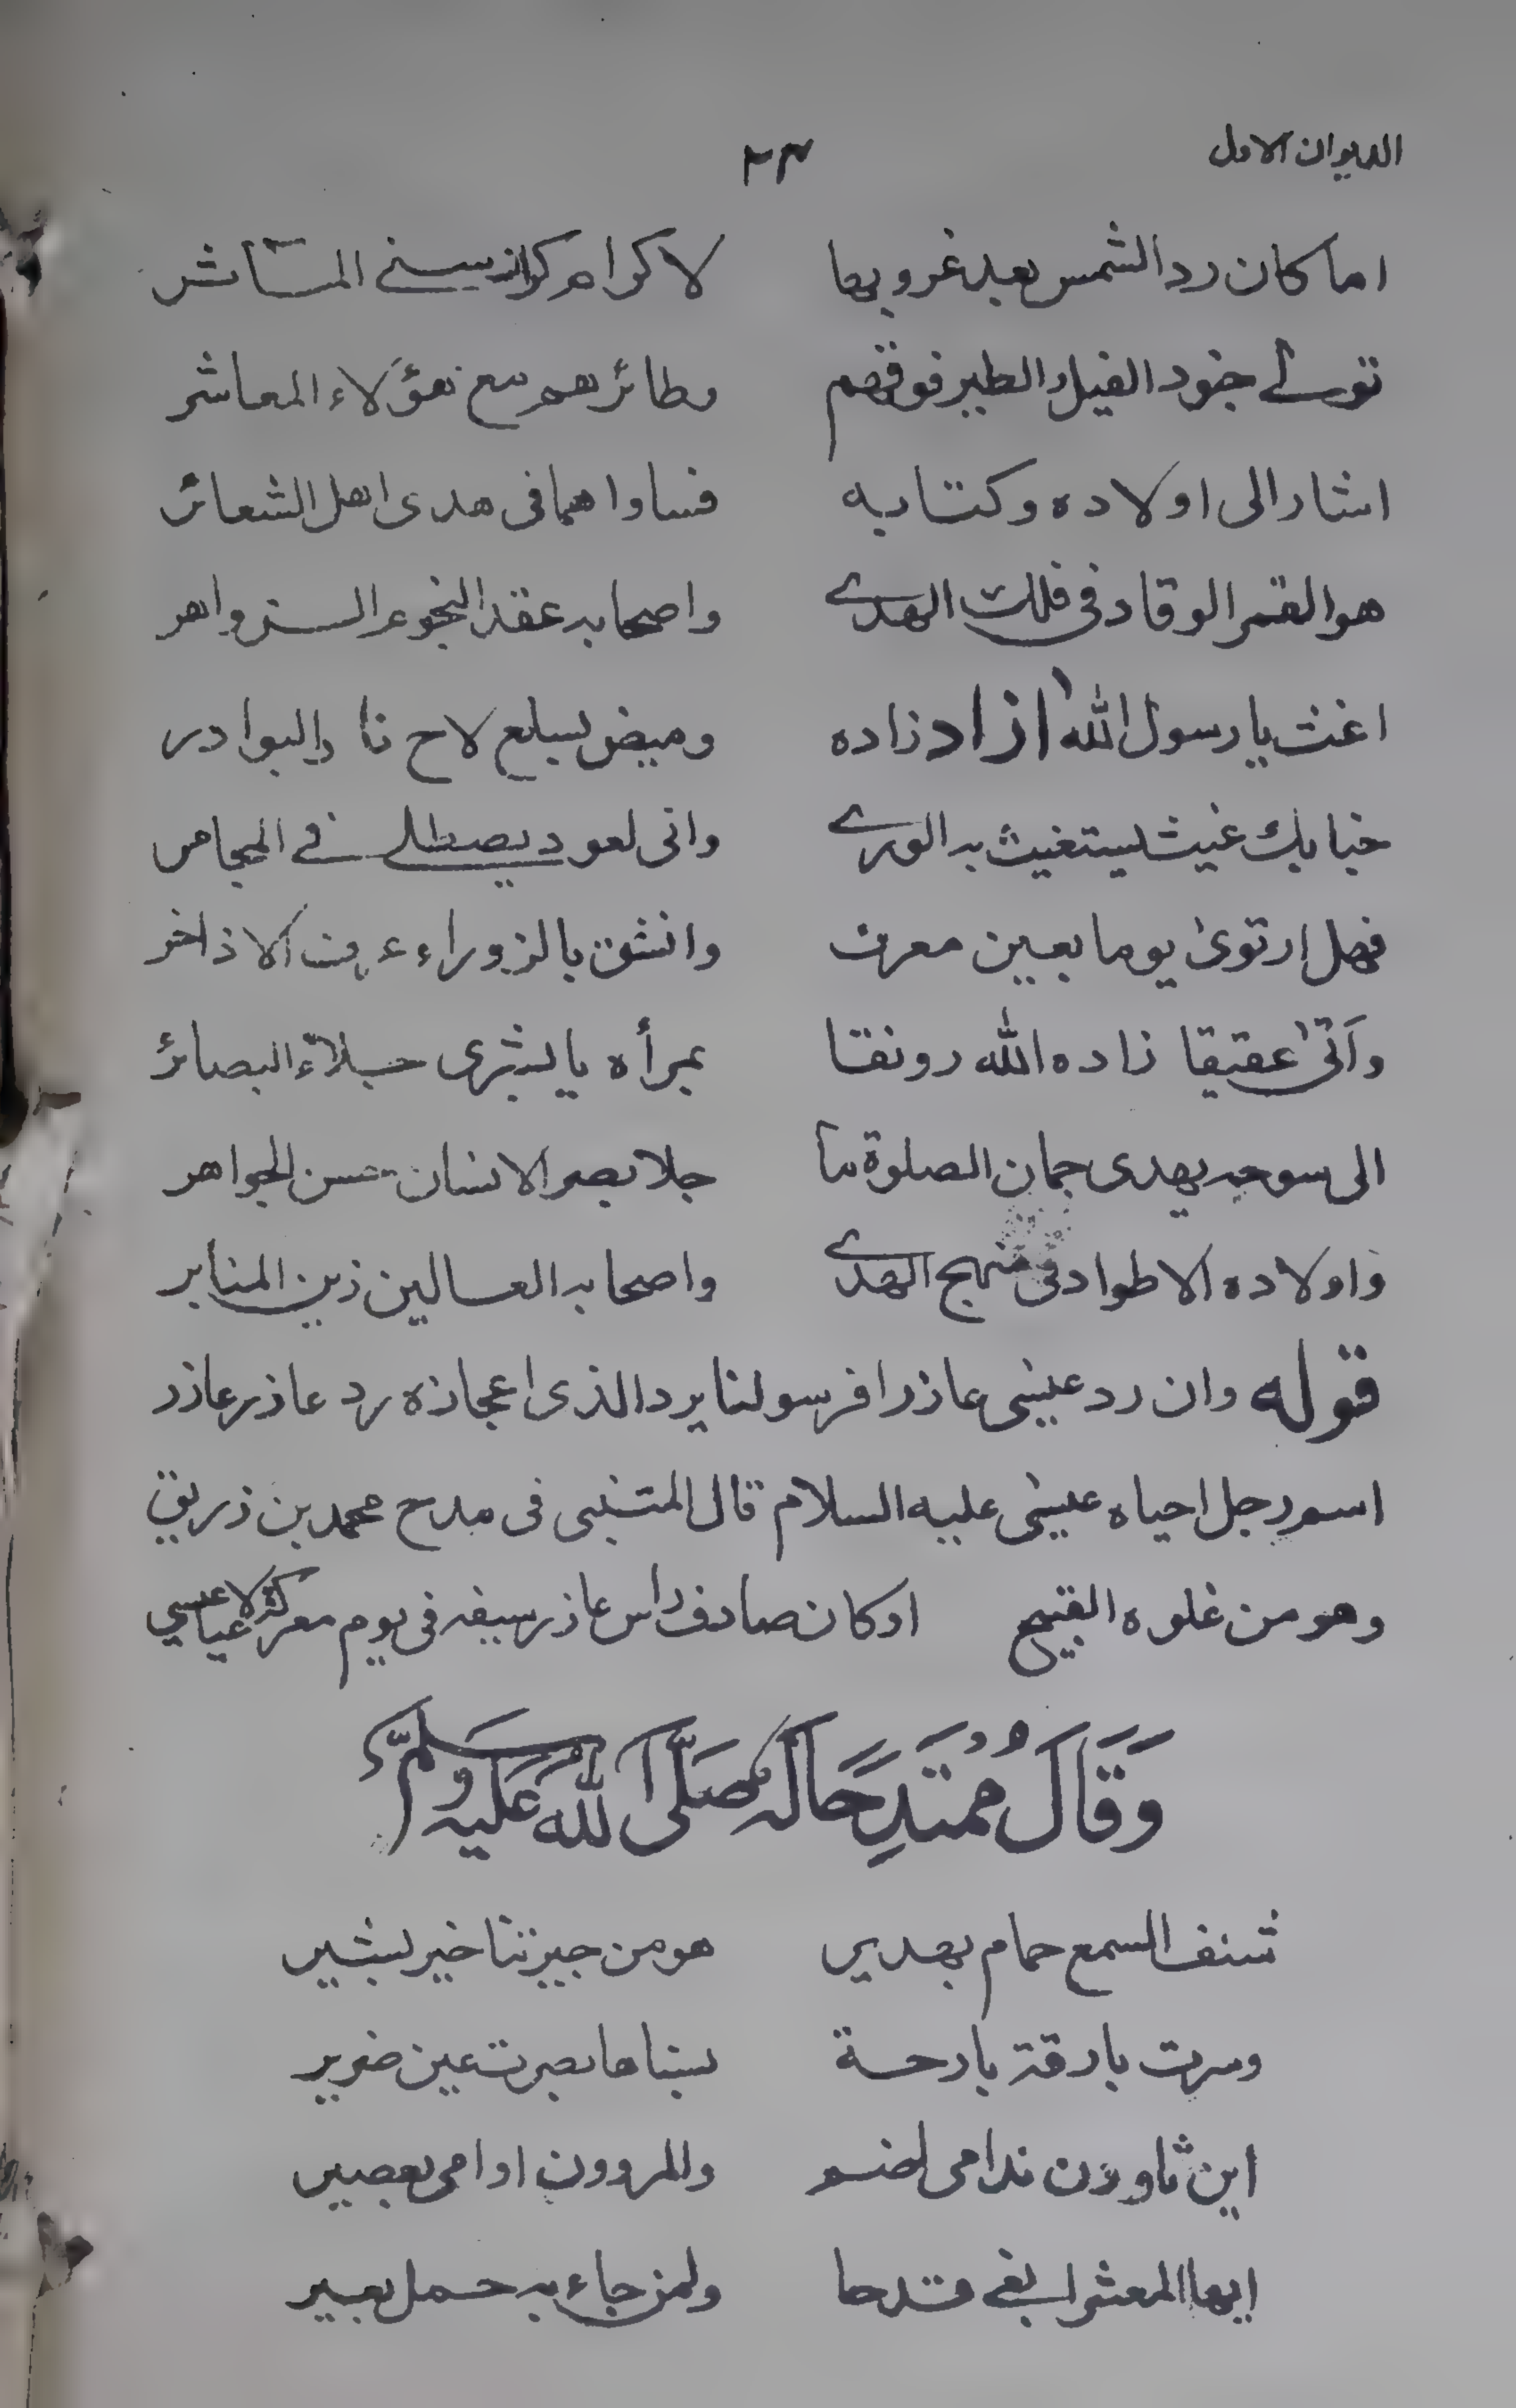 الديوان الاول ٢٣
اما كان رد الشمس بعد غروبها لاكرامه كرا
توى جنود الفيل والطير فوقهم وطائرهم مع هؤلاء المعاشر
اشار الى اولاده وكتابه فساواهما فى هدى اهل الشعائر
هو القمر الوقاد فى فلك الهدى واصحابه عقد النجوم الزواهر
اغث يا رسول الله ازاد زاده وميض بسلع لاح نا البوادر
جنابك غيث يستغيث به الورى وانى لعود يصطلى فى المجامر
فهل ارتوى يوما بعين معرف وانشق بالزوراء عرف الاذاخر
وآتى عقيقا زاده الله رونقا بمرأه يا بشرى جلاء البصائر
الى سوحه يهدى جمان الصلوة ما جلا بصر الانسان حسن الجواهر
واولاده الاطواد فى منهج الهدى واصحابه العسالين زين المنابر
قوله وان رد عيسى عاذرا فرسولنا يرد الذى اعجازه رد عاذر عاذر
اسم رجل احياه عيسى عليه السلام قال المتنبى فى مدح محمد بن زريق
وهو من غلوه القبيح اوكان صادف راس عاذر سيفه فى يوم معركة لاعيا عيسي
وَقَالَ مُمتَدِحًا لَهُ صَلَّى اللهُ عَلَيهِ وَسَلَّم
شنف السمع حمام بهدير هو من جيرتنا خير بشير
وسرت بارقة بارحة بسناها بصرت عين ضرير
اين ثاوون ندامى لهنم والمروون اوامى بعصير
ايها المعشر ابغى قدحا ولمن جاء به حمل بعير